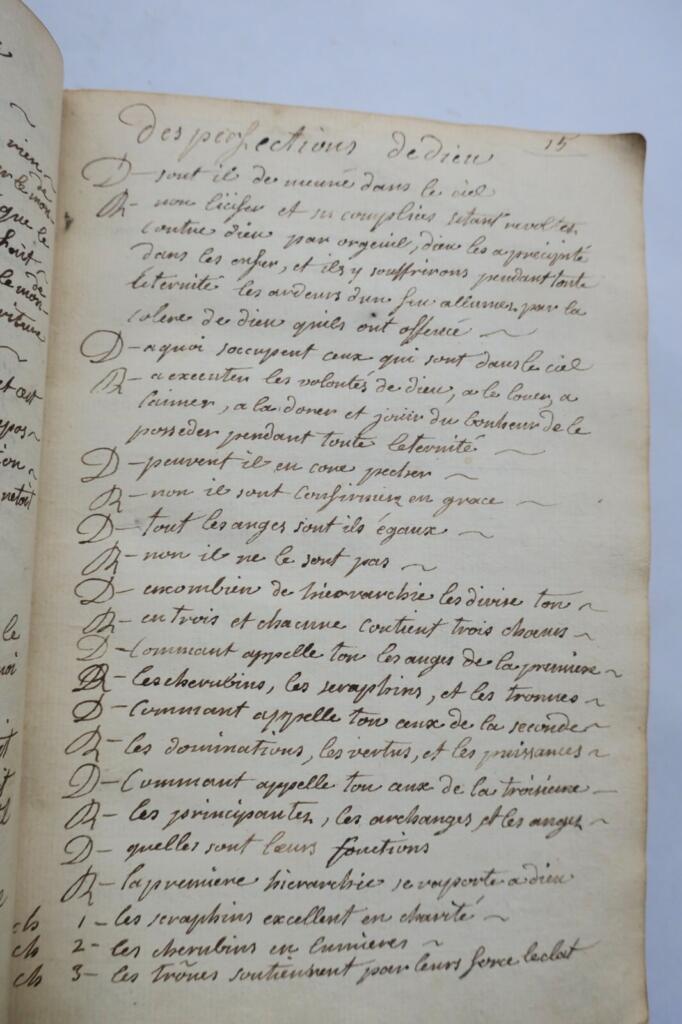 des perfections de dieu
15
D — sont il de meuré dans le ciel
R — non lucifer et ses complices setant revoltes
contre dieu par orgeuil, dieu les a precipité
dans les enfer, et ils y souffrirons pendant toute
leternité les ardeurs dun feu allumes par la
colere de dieu quils ont offencé ~
D — a quoi soccupent ceux qui sont dans le ciel
R — a executer les volontés de dieu, a le louer, a
laimer, a la dorer et joüir du bonheur de le
posseder pendant toute leternité ~
D — peuvent il en core pecher ~
R — non il sont confirmez en grace ~
D — tout les anges sont ils égaux ~
R — non il ne le sont pas ~
D — en combien de hierarchie les divise ton ~
R — en trois et chacune contient trois chœurs ~
D — Commant appelle ton les anges de la premiere ~
R — les cherubins, les seraphins, et les tronnes ~
D — Commant appelle ton ceux de la seconde ~
R — les dominations, les vertus, et les puissances ~
D — Commant appelle ton ceux de la troisieme —
R — les principantez, les archanges et les anges ~
D — quelles sont leurs fonctions
R — la premiere hierarchie se raporte a dieu
1 — les seraphins excellent en charité ~
2 — les cherubins en lumieres ~
3 — les trônes soutiennent par leurs force leclat
que le
le mon-
et cest
ion ~
le
ch
ch
ch